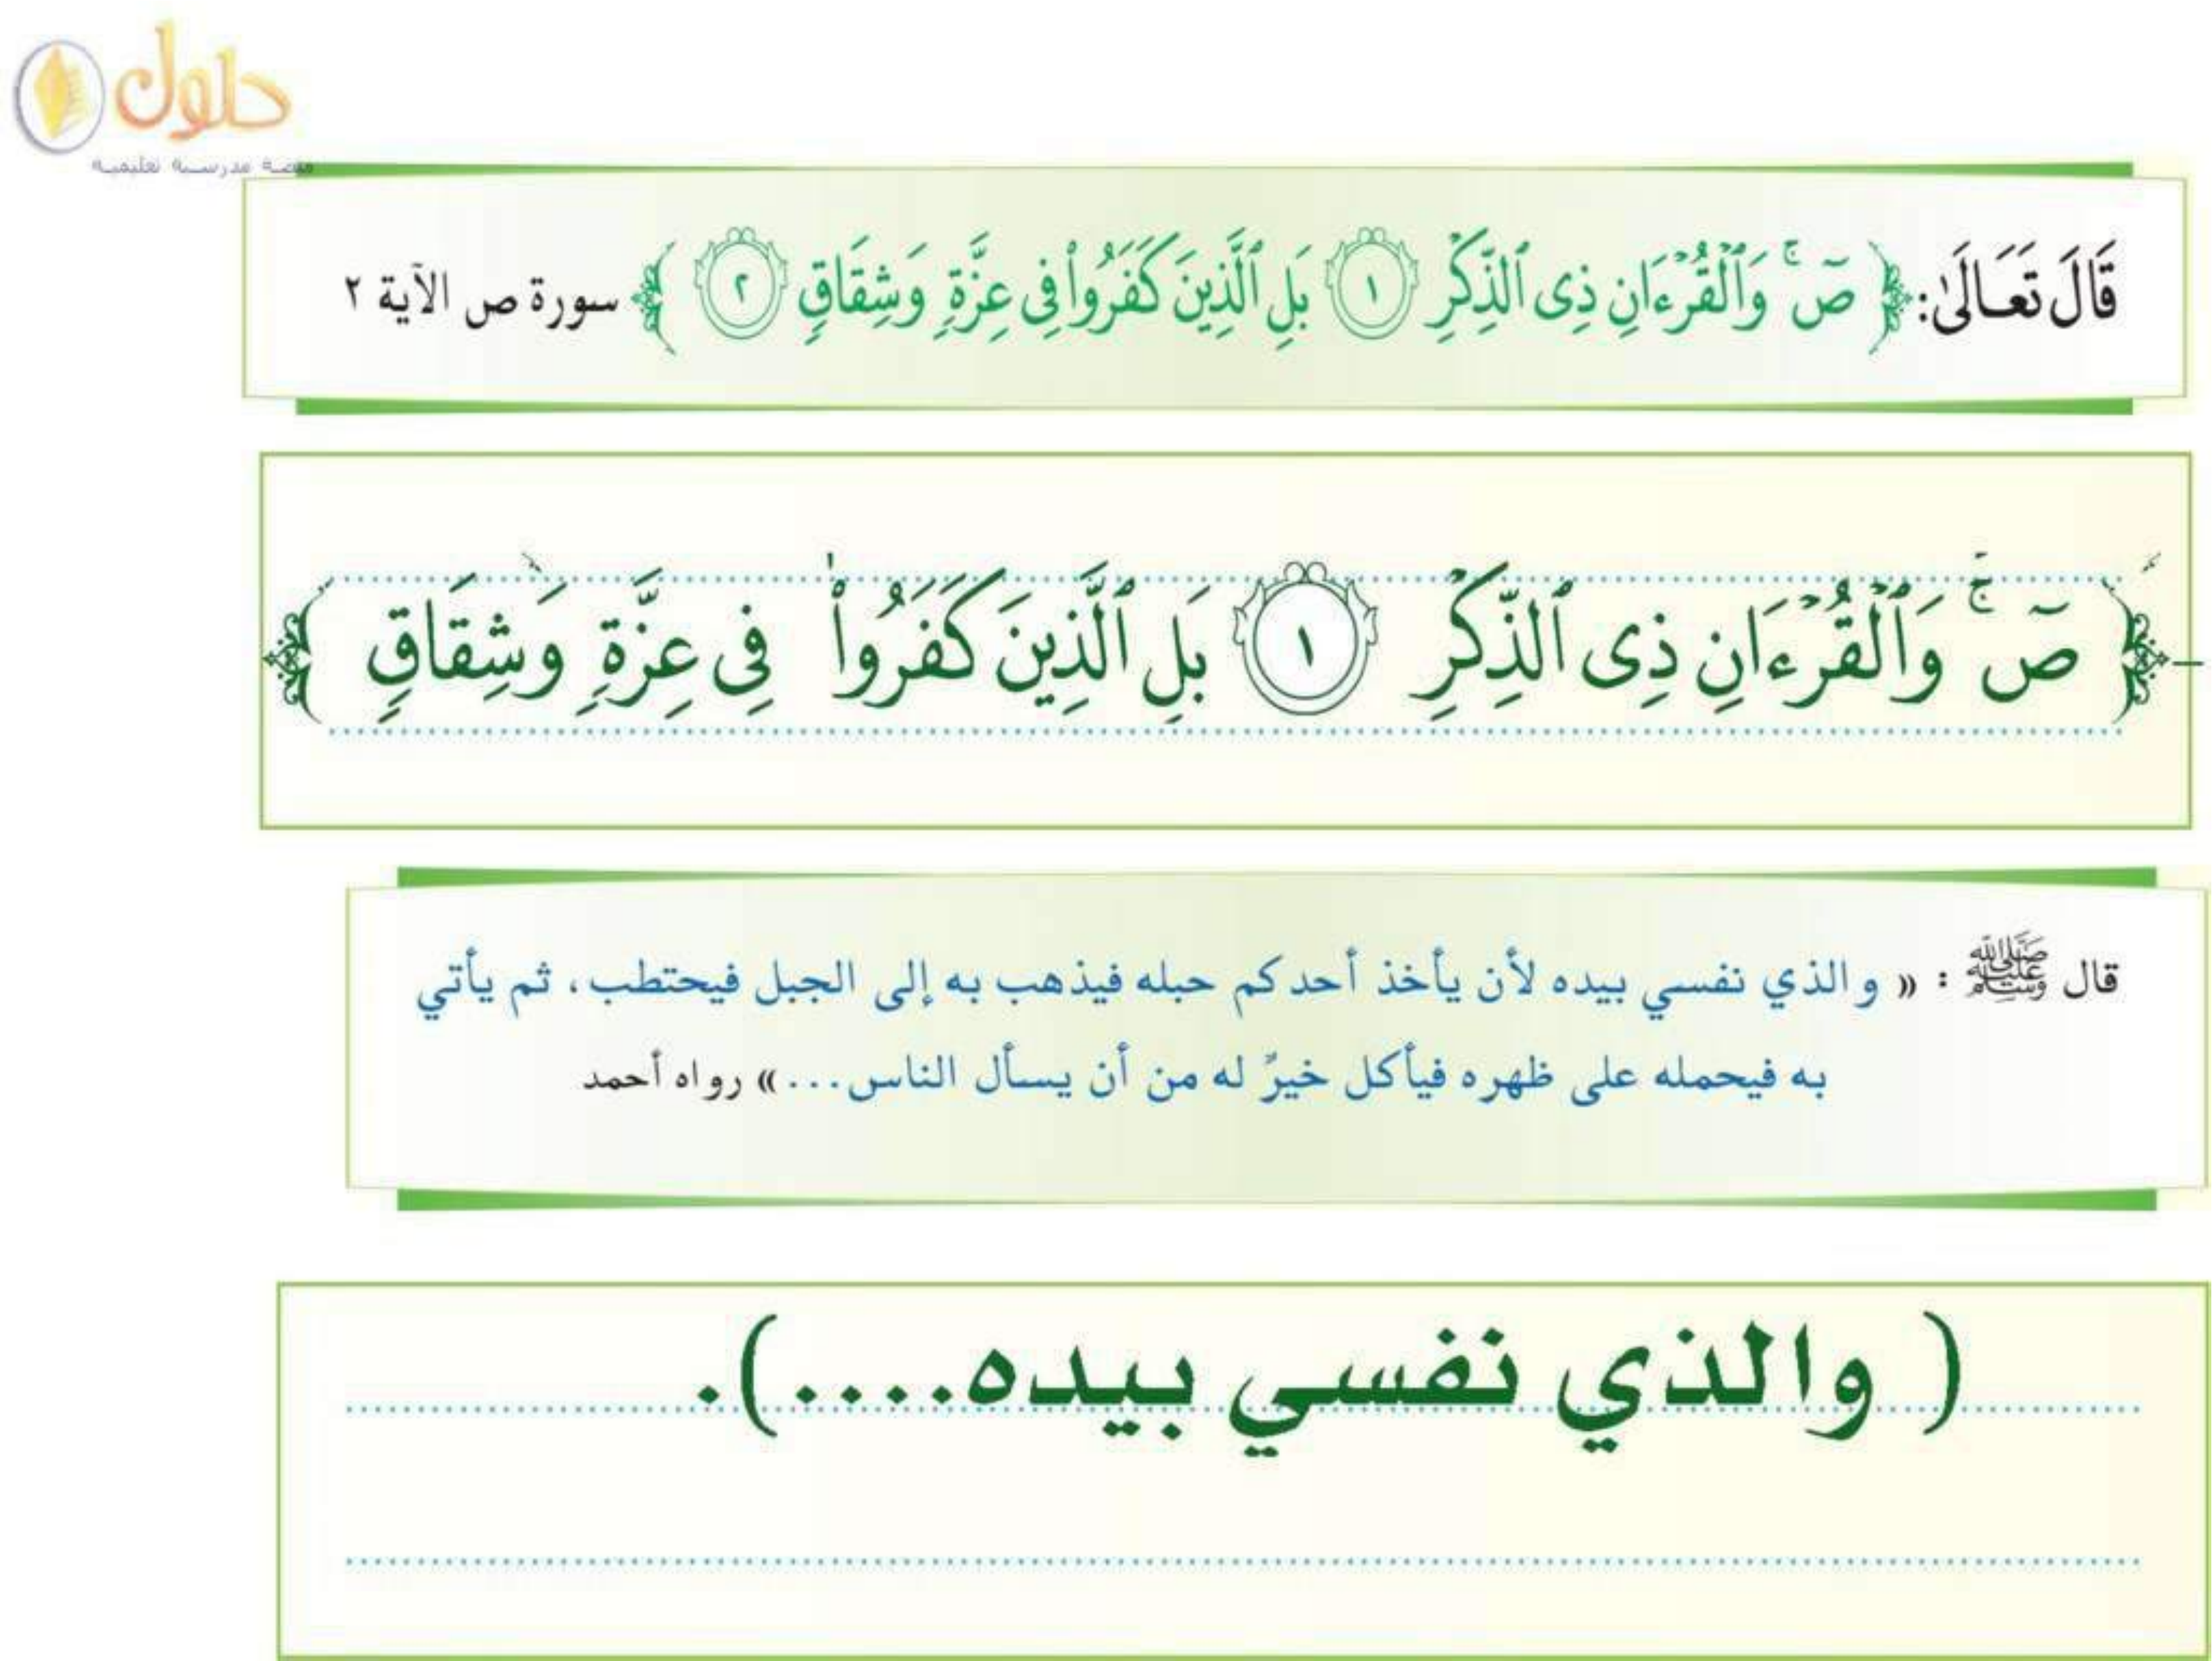 حلول
منصة مدرسية تعليمية
قَالَ تَعَالَىٰ: ﴿ صٓ ۚ وَٱلْقُرْءَانِ ذِى ٱلذِّكْرِ ١ بَلِ ٱلَّذِينَ كَفَرُوا۟ فِى عِزَّةٍ وَشِقَاقٍ ٢ ﴾ سورة ص الآية ٢
﴿ صٓ ۚ وَٱلْقُرْءَانِ ذِى ٱلذِّكْرِ ١ بَلِ ٱلَّذِينَ كَفَرُوا۟ فِى عِزَّةٍ وَشِقَاقٍ ﴾
قال ﷺ : « والذي نفسي بيده لأن يأخذ أحدكم حبله فيذهب به إلى الجبل فيحتطب، ثم يأتي
به فيحمله على ظهره فيأكل خيرٌ له من أن يسأل الناس...» رواه أحمد
( والذي نفسي بيده....).